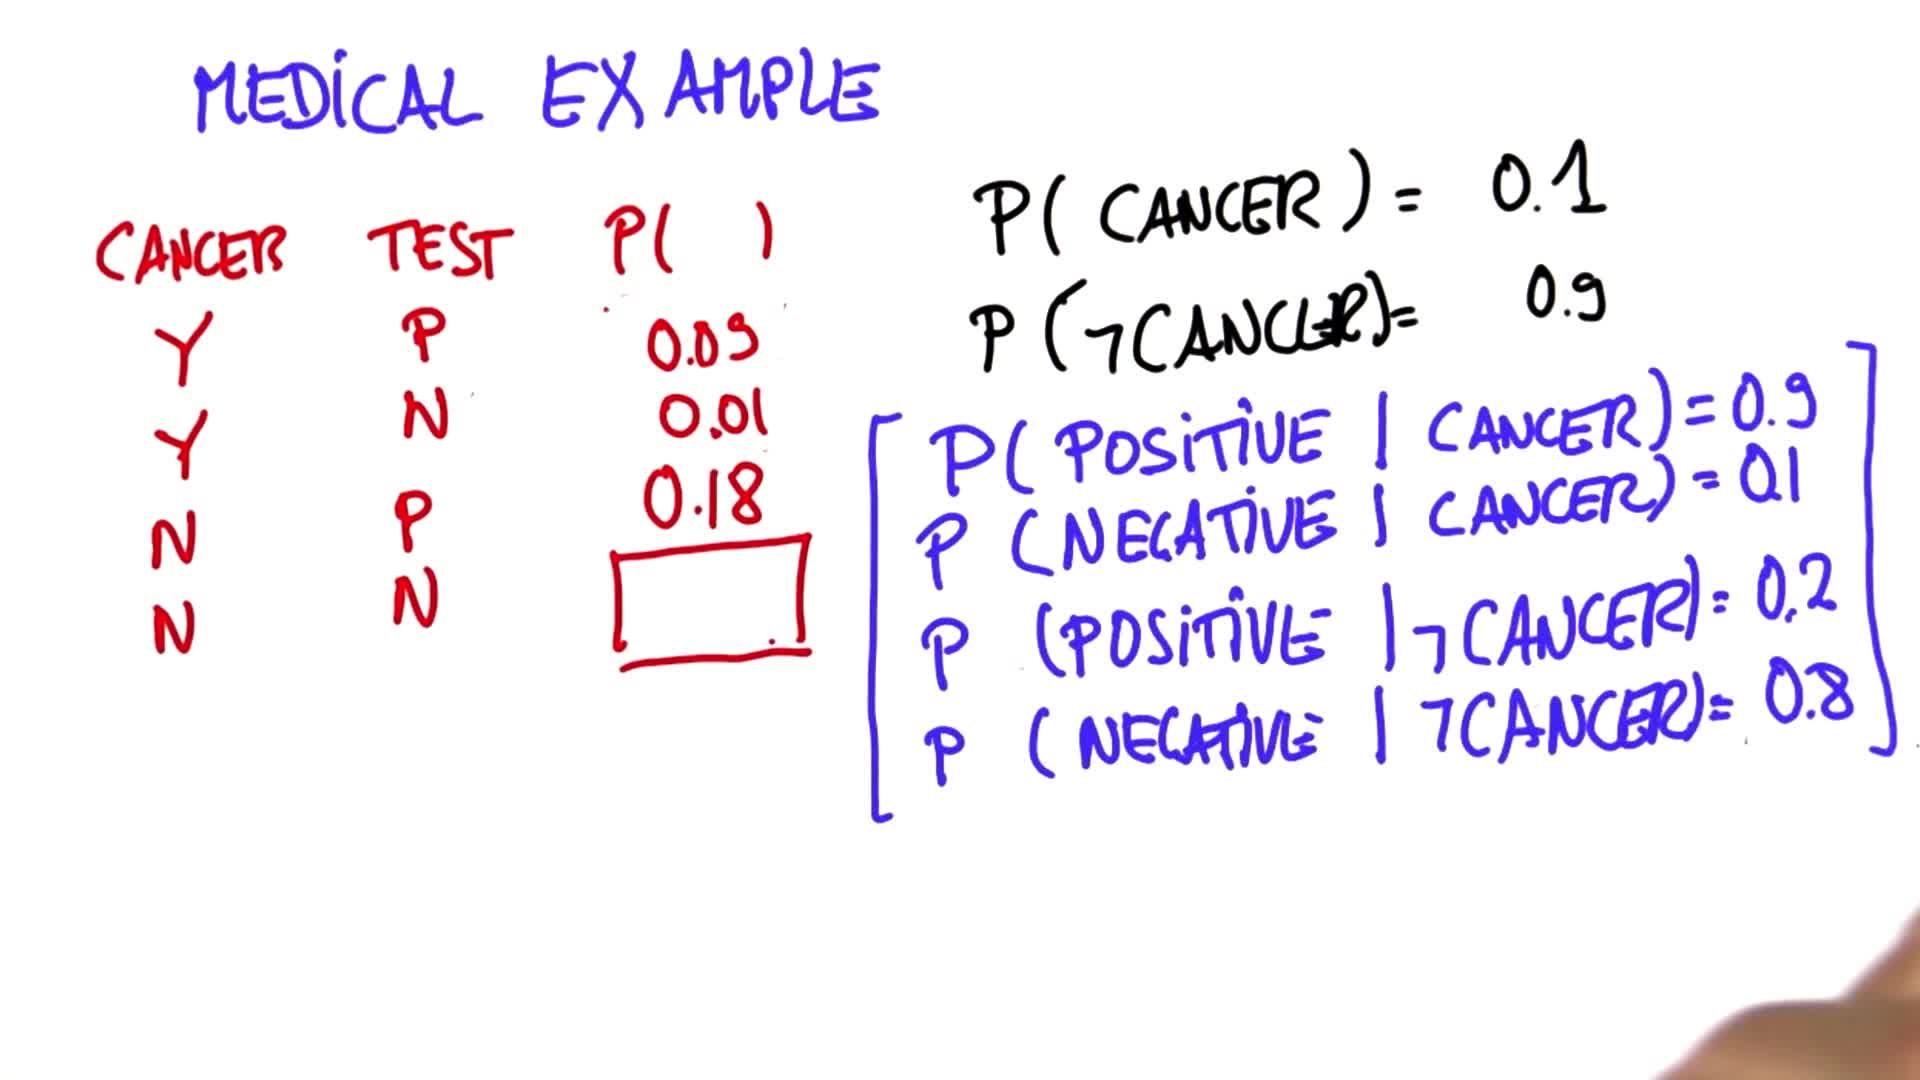 MEDICAL EXAMPLE
CANCER TEST P( )
Y P 0.09
Y N 0.01
N P 0.18
N N
P( CANCER ) = 0.1
P (¬CANCER) = 0.9
P( POSITIVE | CANCER) = 0.9
P (NEGATIVE | CANCER) = 0.1
P (POSITIVE | ¬CANCER) = 0.2
P (NEGATIVE | ¬CANCER) = 0.8